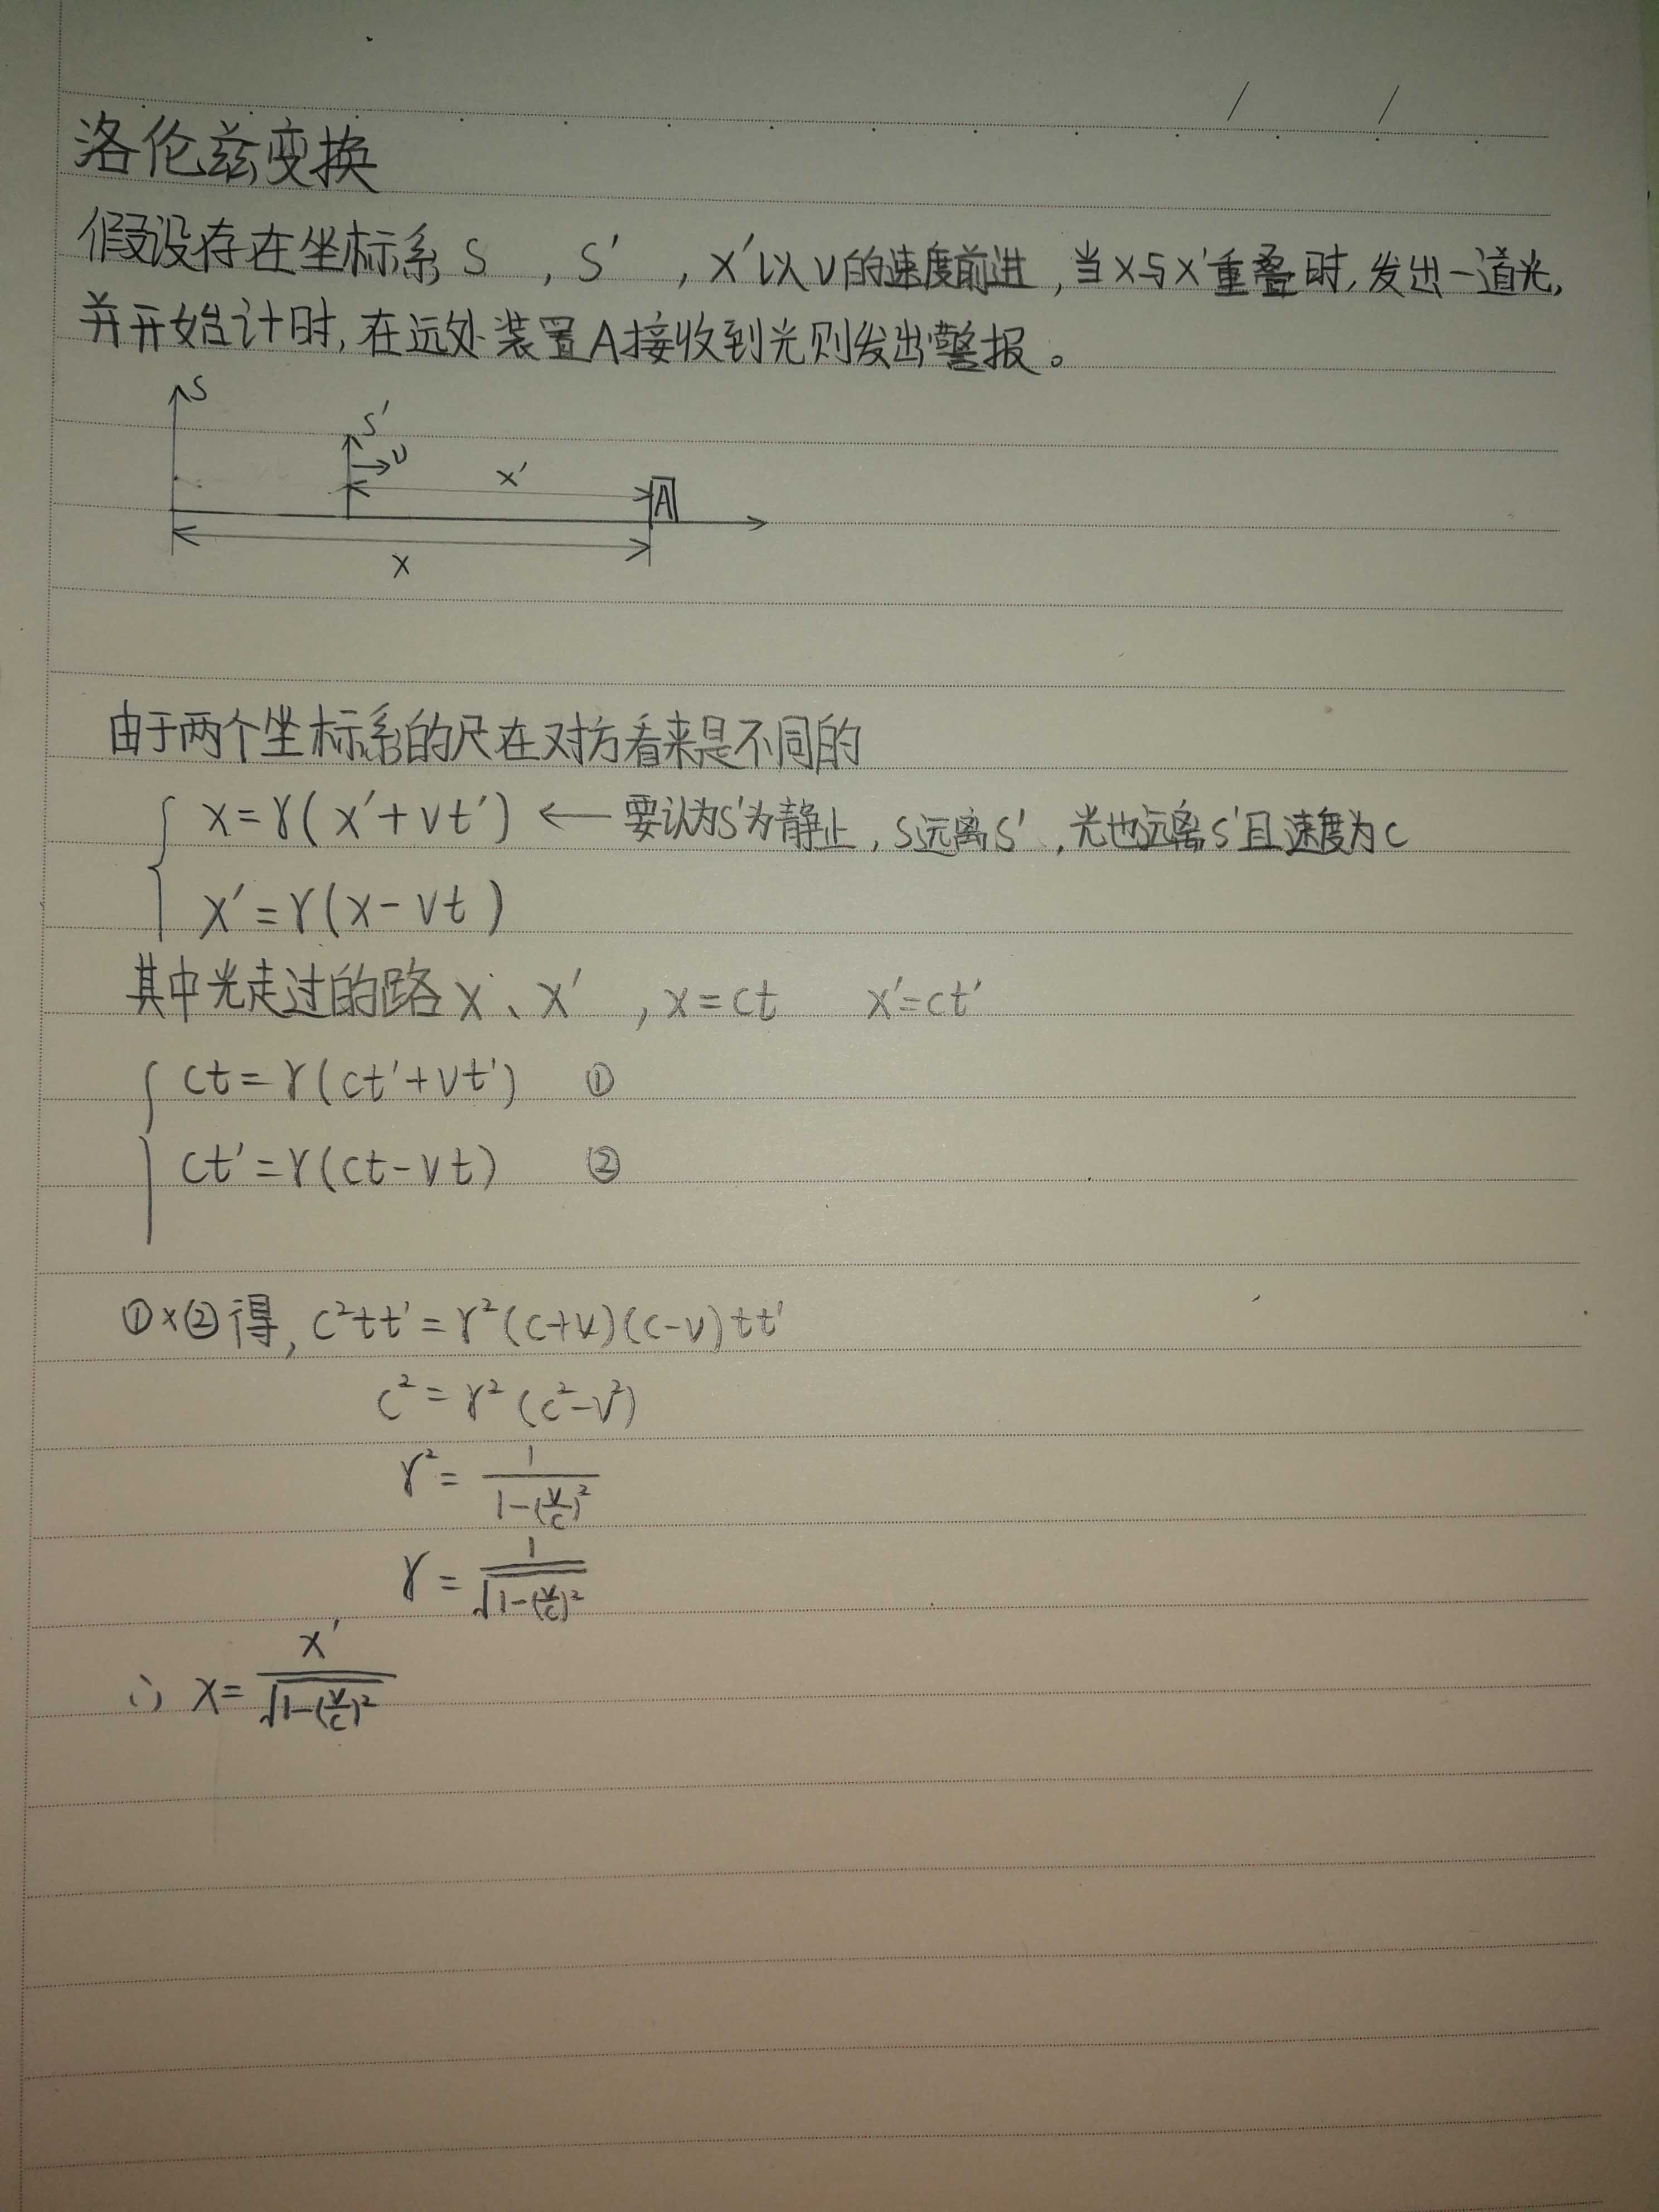 洛伦兹变换
假设存在坐标系 S , S' , x'以v的速度前进,当x与x'重叠时,发出一道光,
并开始计时,在远处装置A接收到光则发出警报。
S
S'
v
x'
A
x
由于两个坐标系的尺在对方看来是不同的
x=γ(x'+vt') ← 要认为S'为静止,S远离S',光也远离S'且速度为c
x'=γ(x-vt)
其中光走过的路x、x' ,x=ct x'=ct'
ct=γ(ct'+vt') ①
ct'=γ(ct-vt) ②
①×②得, c²tt'=γ²(c+v)(c-v)tt'
c²=γ²(c²-v²)
γ²=1/(1-(v/c)²)
γ=1/√(1-(v/c)²)
∴ x=x'/√(1-(v/c)²)